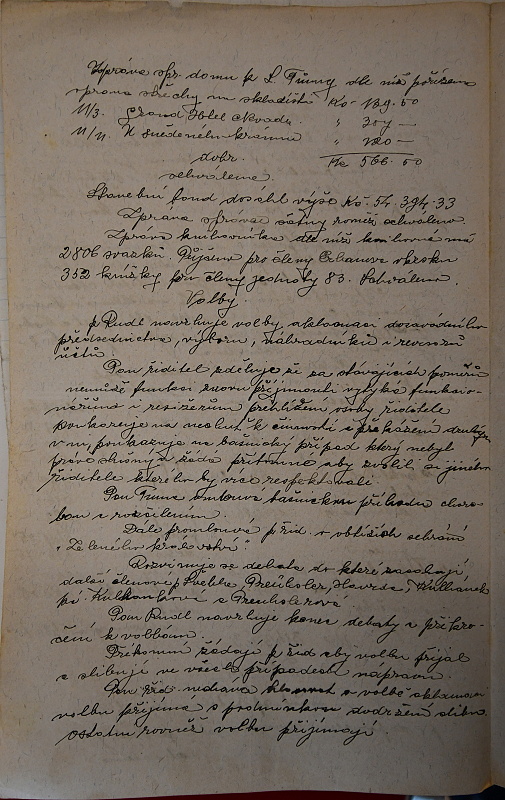 Zpráva spr. domu p. L. Tůmy dle níž pořízena
oprava střechy na skladišti Kč 139.50
11/3. Grand Hotel " 307 —
11/11. U " 120 —
Kč 566.50
schváleno.
Stavební fond dosáhl výše Kč. 54.394.33
Zpráva správce rovněž schválena.
Zpráva knihovníka dle níž knihovna má
2806 svazků. Půjčeno pro členy okrsku
352 knížky pro členy jednoty 83. Schváleno.
Volby.
p. Rudl navrhuje volby, aklamací dosavadního
předsednictva, výboru, náhradníků i revisorů
účtů.
Pan řiditel sděluje že za stávajících poměrů
nemůže funkci znovu přijmouti vytýká funkcio-
nářům i režisérům přehlížení osoby řiditele
poukazuje na nechuť k činnosti
poukazuje na případ který nebyl
právě slušný a žádá přítomné aby zvolili si jiného
řiditele kterého by více respektovali.
Pan Tůma omlouvá příhodu choro-
bou a rozčilením.
Dále promlouvá p. řid. o obtížích sehrání
"Zeleného království".
Rozvinuje se debata do které zasahují
další členové p. Švehla, Preuholer, Havrda, Kulhánek
pí Kulhánková a Preuholerová.
Pan Rudl navrhuje konec debaty a přikro-
čení k volbám.
Přítomní žádají p. řid. aby volbu přijal
a slibují ve všech případech nápravu.
Pan řid. volbě aklamací
volbu přijímá s dodržení slibu
ostatní rovněž volbu přijímají.